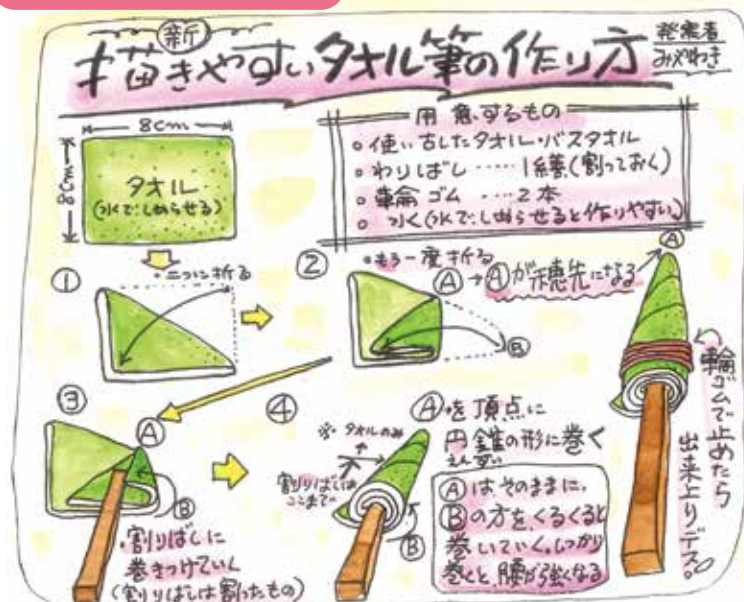 新
描きやすいタオル筆の作り方
発案者
みやわき
8cm
8cm
タオル
(水でしめらせる)
用意するもの
使い古したタオル・バスタオル
わりばし‥‥‥1繕(割っておく)
輪ゴム‥‥2本
水(水でしめらせると作りやすい)
①
・二つに折る
②
・もう一度折る
Ⓐ→Ⓐが穂先になる
Ⓑ
Ⓐ
③
Ⓐ
Ⓑ
・割りばしに
巻きつけていく
(割りばしは割ったもの)
④
※タオルのみ
割りばしは
ここまで
Ⓑ
Ⓐを頂点に
円錐の形に巻く
えんすい
Ⓐはそのままに、
Ⓑの方をくるくると
巻いていく。しっかり
巻くと、腰が強くなる
輪ゴムで止めたら
出来上りデス。